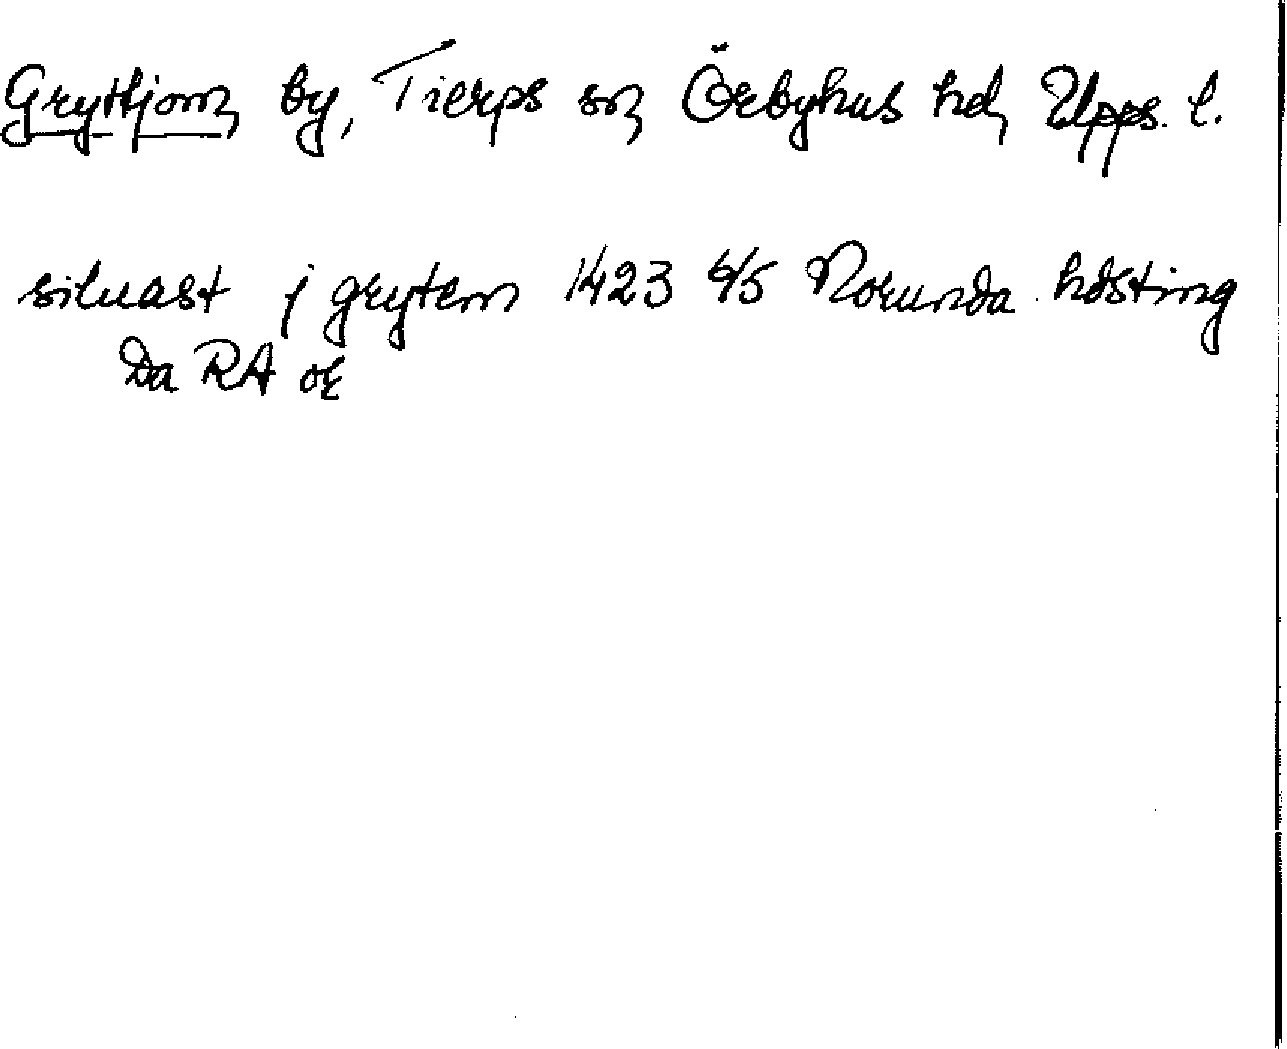 Gryttjom, by, Tierps sn, Örbyhus hd, Upps. l.
siluast j grytem 1423 6/5 Norunda hdsting
Da RA or